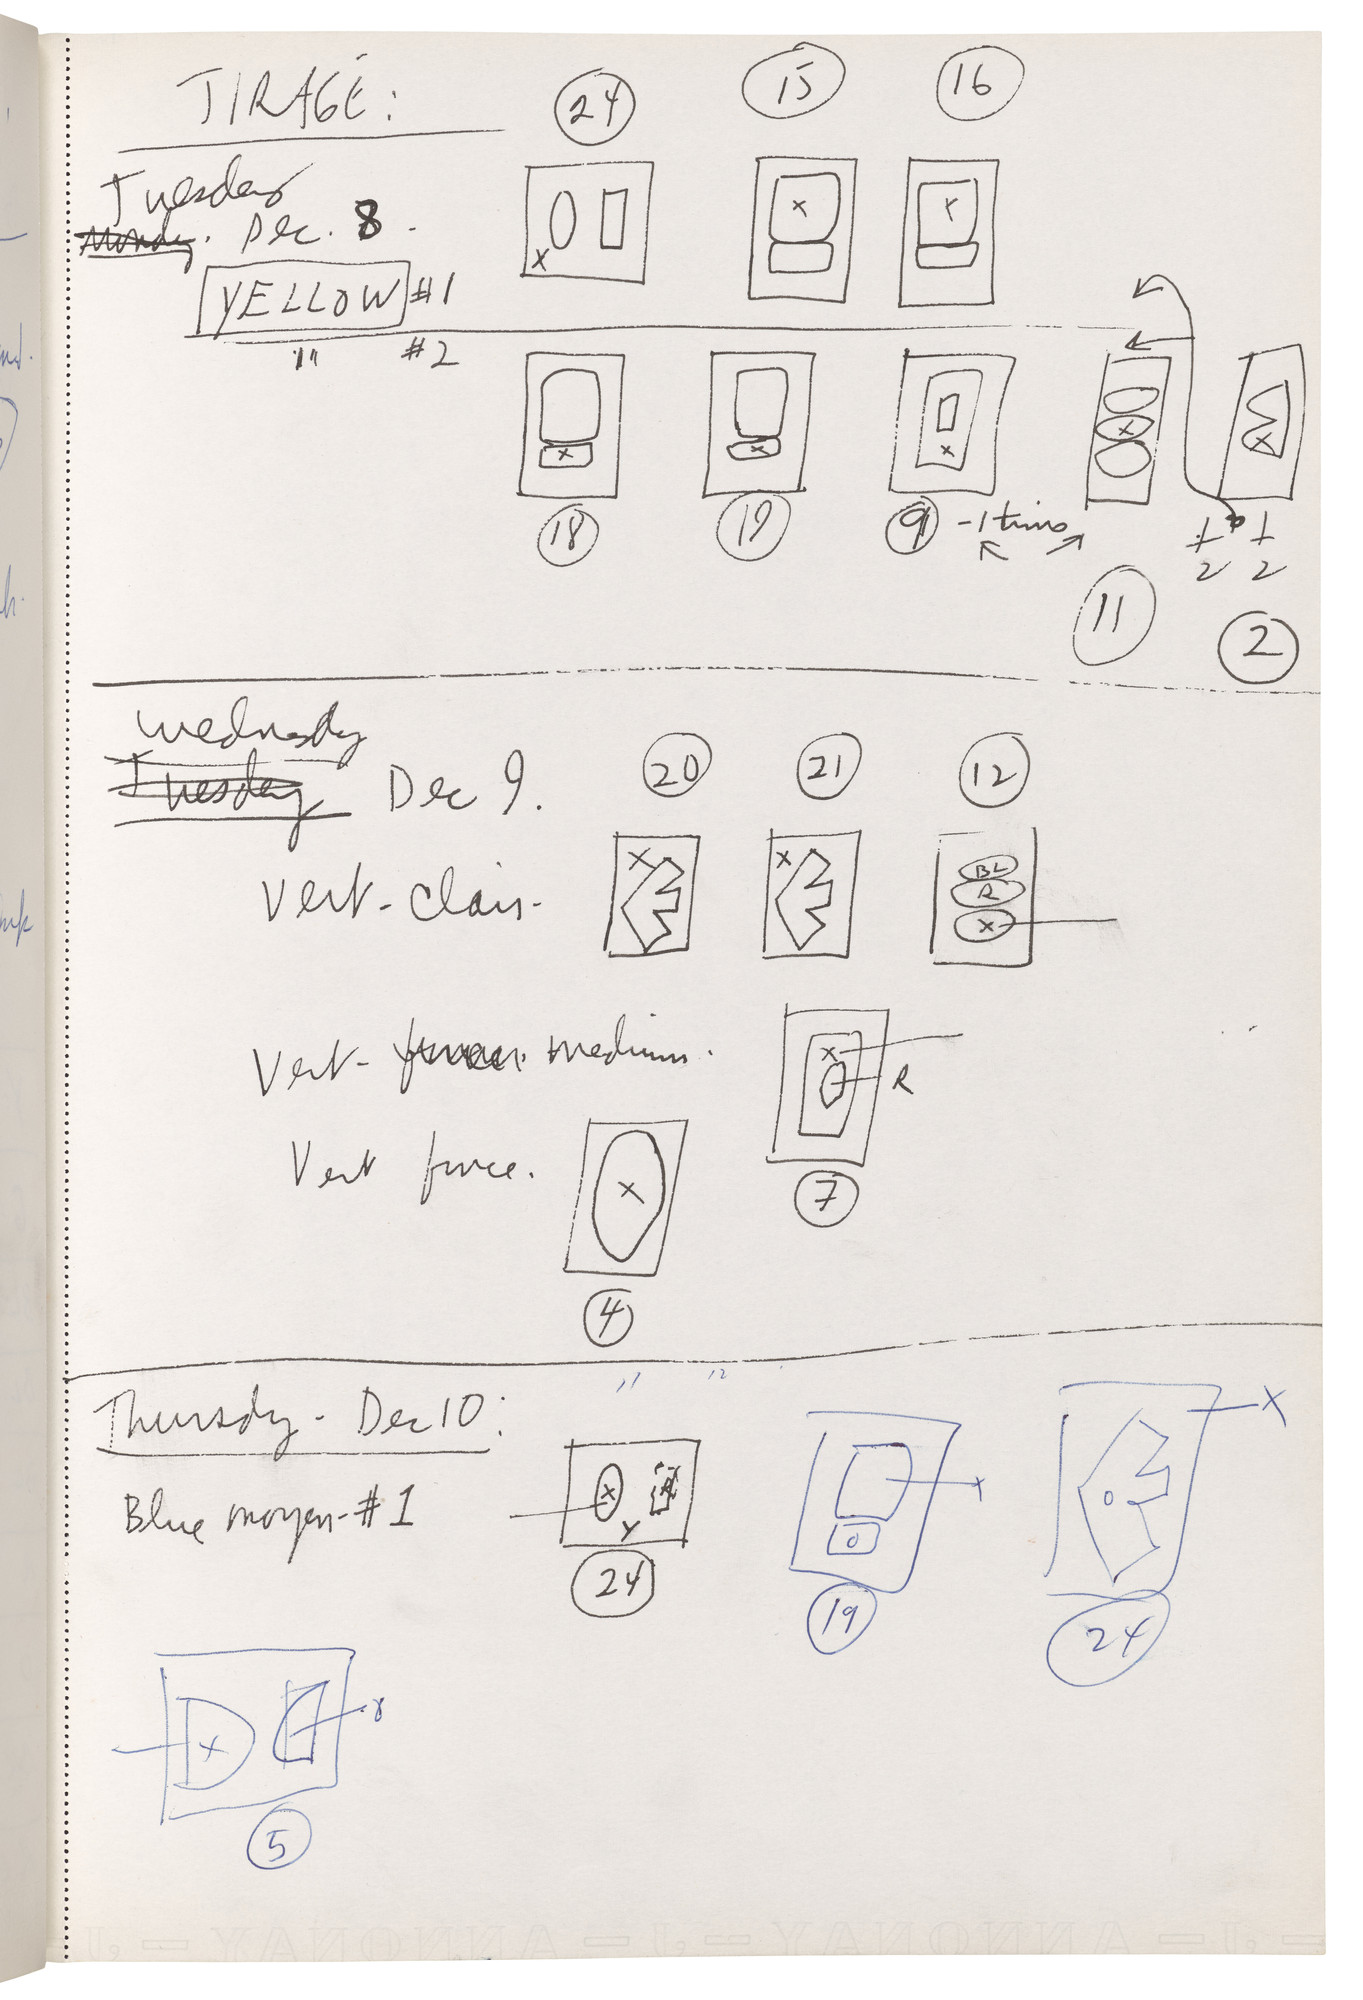 TIRAGE:
24 15 16
Tuesday
Monday. Dec. 8.
x x x
YELLOW #1
" #2
x x x x x
18 19 9 - 1 time
1/2 1/2
11 2
Wednesday
Tuesday Dec 9.
20 21 12
Vert-clair-
x x BL
R
x
Vert- medium.
x
R
Vert
x
7
4
" "
Thursday- Dec 10:
x
Blue moyen-#1
x
Y
x
o
o
24
19
24
x
5
ANNONAY